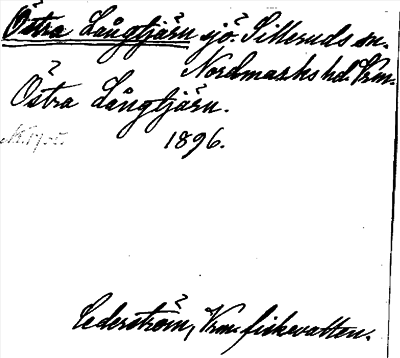 Östra Långtjärn sjö. Silleruds sn.
Nordmarks hd. Vrm.
Östra Långtjärn.
1896.
Cederström, Vrm. fiskevatten.